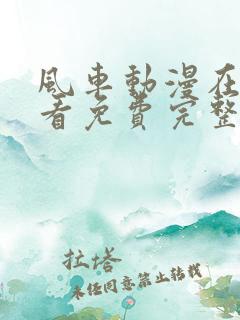 風車動漫在
看免費完整
拉塔
未经同意禁止转载